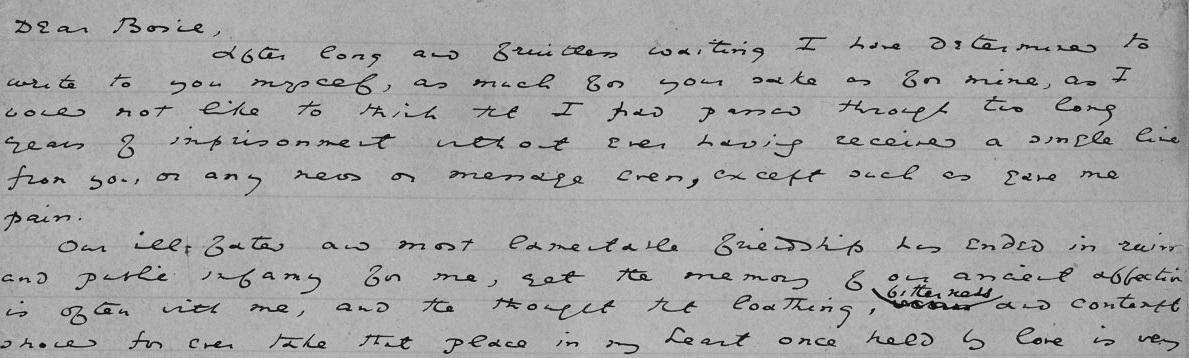 Dear Bosie,
After long and fruitless waiting I have determined to
write to you myself, as much for your sake as for mine, as I
would not like to think that I had passed through two long
years of imprisonment without ever having received a single line
from you, or any news or message even, except such as gave me
pain.
Our ill-fated and most lamentable friendship has ended in ruin
and public infamy for me, yet the memory of our ancient affection
is often with me, and the thought that loathing, bitterness and contempt
should for ever take that place in my heart once held by love is very